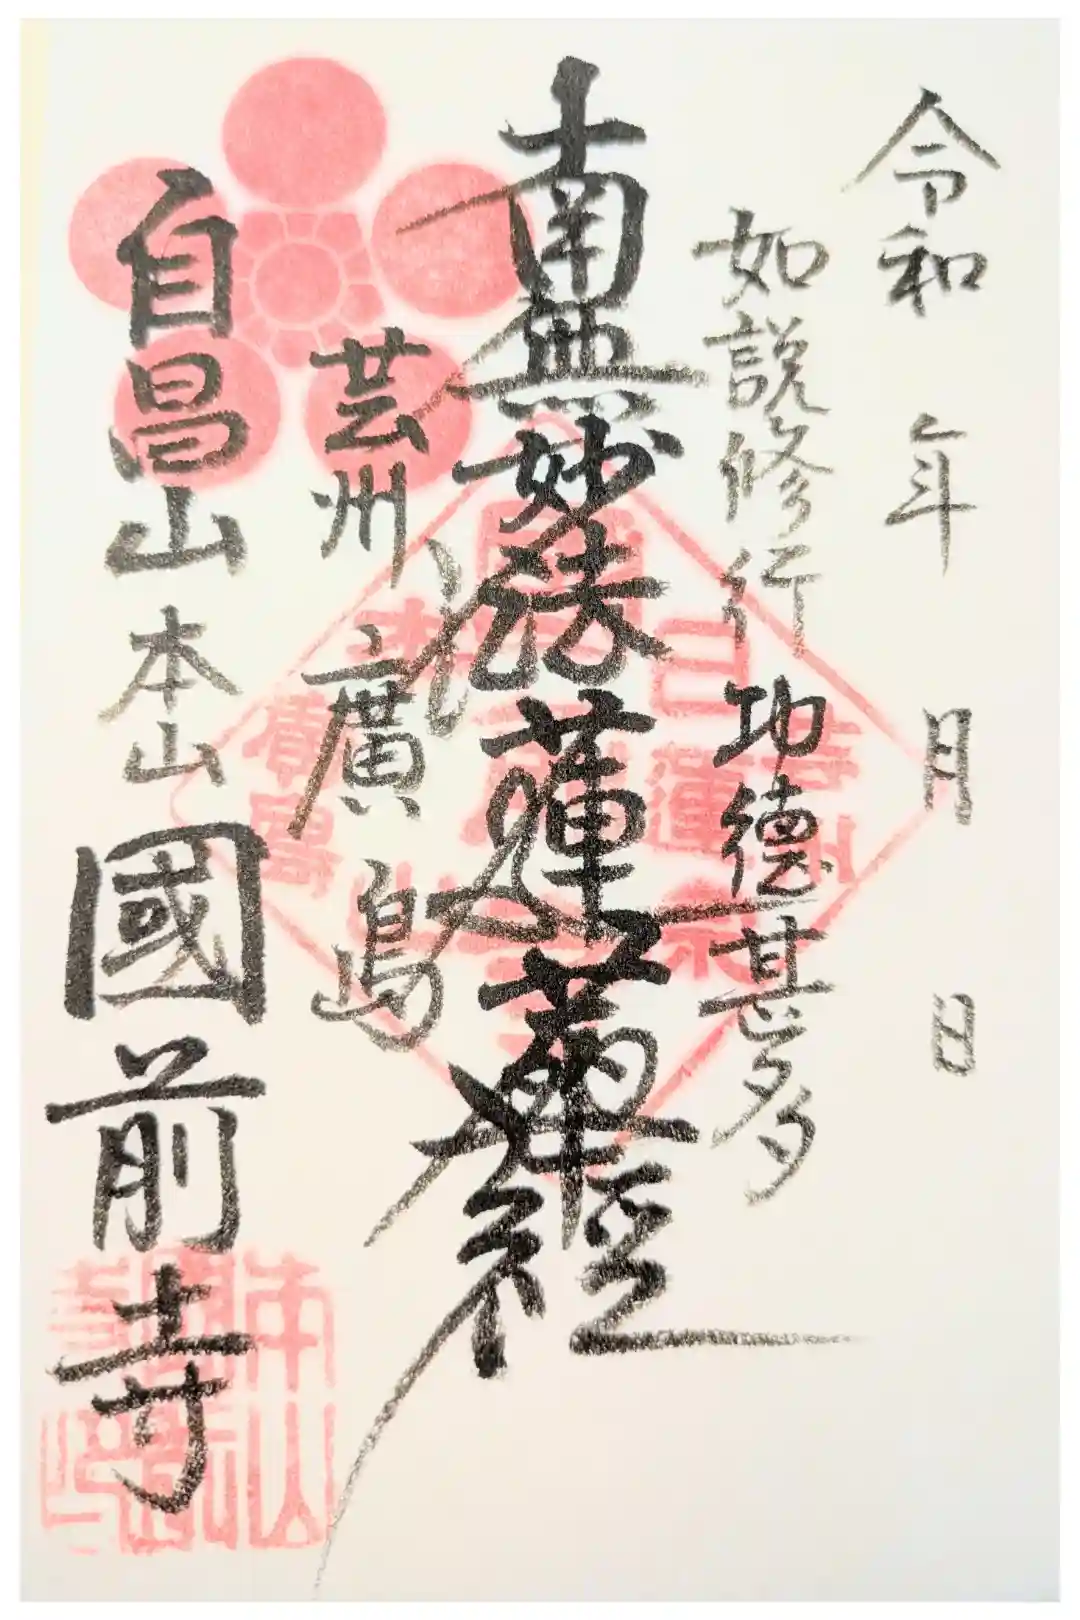 令和 年 月 日
如説修行 功徳甚多
南無妙法蓮華経
芸州 廣島
自昌山 本山 國前寺